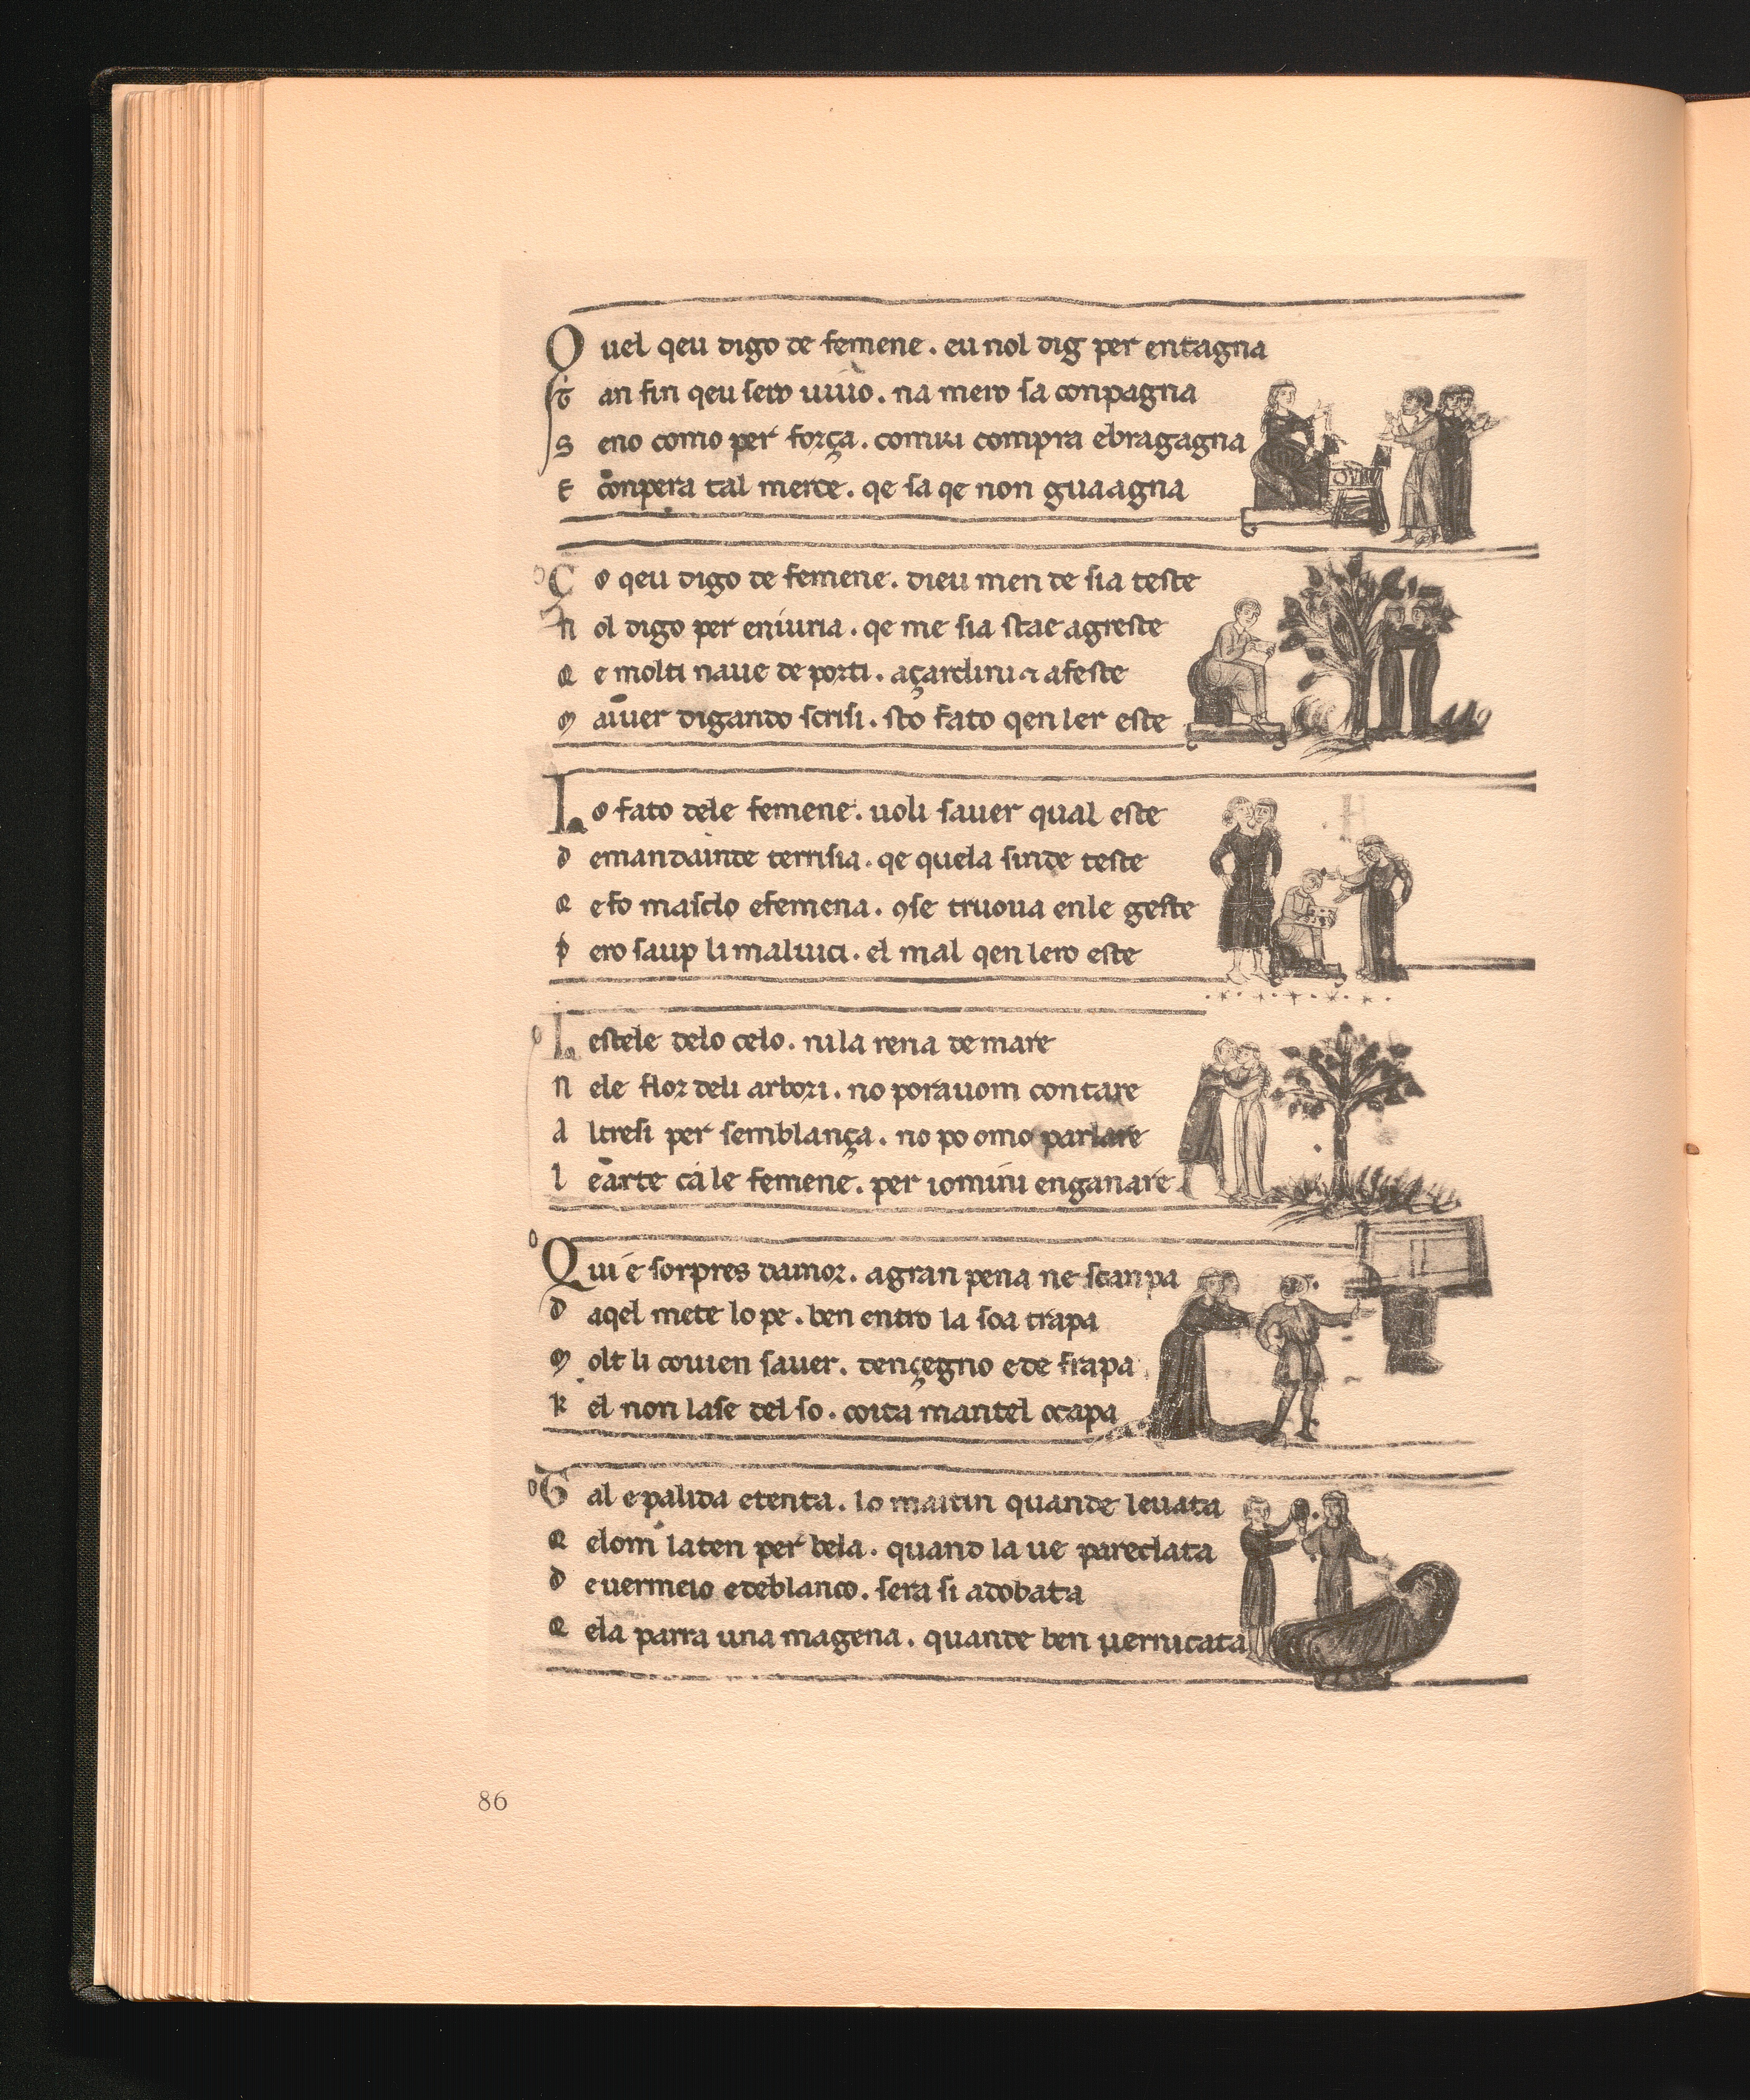 Quel qeu digo de femene. eu nol dig per entagna
tan fin qeu sero uiuo. na mero sa conpagna
s eno como per força. comui compra ebragagna
e conpera tal merce. qe sa qe non guaagna
Ço qeu digo de femene. dieu men de sia teste
n ol digo per eniuria. qe me sia stae agreste
q e molti naue de porti. açardini afeste
m auer digando scrisi. sto fato qen ler este
Lo fato dele femene. uoli sauer qual este
d emandainde terrisia. qe quela sinde teste
q e fo masclo efemena. 9se truoua enle geste
p ero saup li maluici. el mal qen lero este
L estele delo celo. ni la rena de mare
n ele flor deli arbori. no porauom contare
a ltresi per semblança. no po omo parlare
l e arte cà le femene. per iomini enganare
Qui é sorpres damor. a gran pena ne scanpa
d aqel mete lo pe. ben entro la soa trapa
m olt li couien sauer. dençegno e de frapa
k el non lase del so. coita mantel o capa
Tal e palida e tenta. lo maitin quande leuata
q elom la ten per bela. quand la ue pareclata
d e uermeio e deblanco. sera si adobata
q ela parra una magena. quande ben uernicata
86